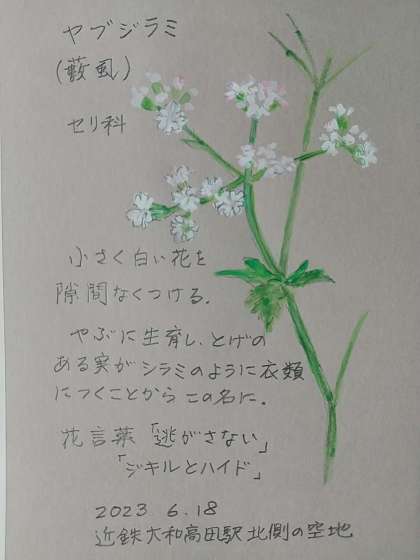 ヤブジラミ
(藪虱)
セリ科
小さく白い花を
隙間なくつける.
やぶに生育し、とげの
ある実がシラミのように衣類
につくことから この名に.
花言葉「逃がさない」
「ジキルとハイド」
2023 6.18
近鉄大和高田駅北側の空地